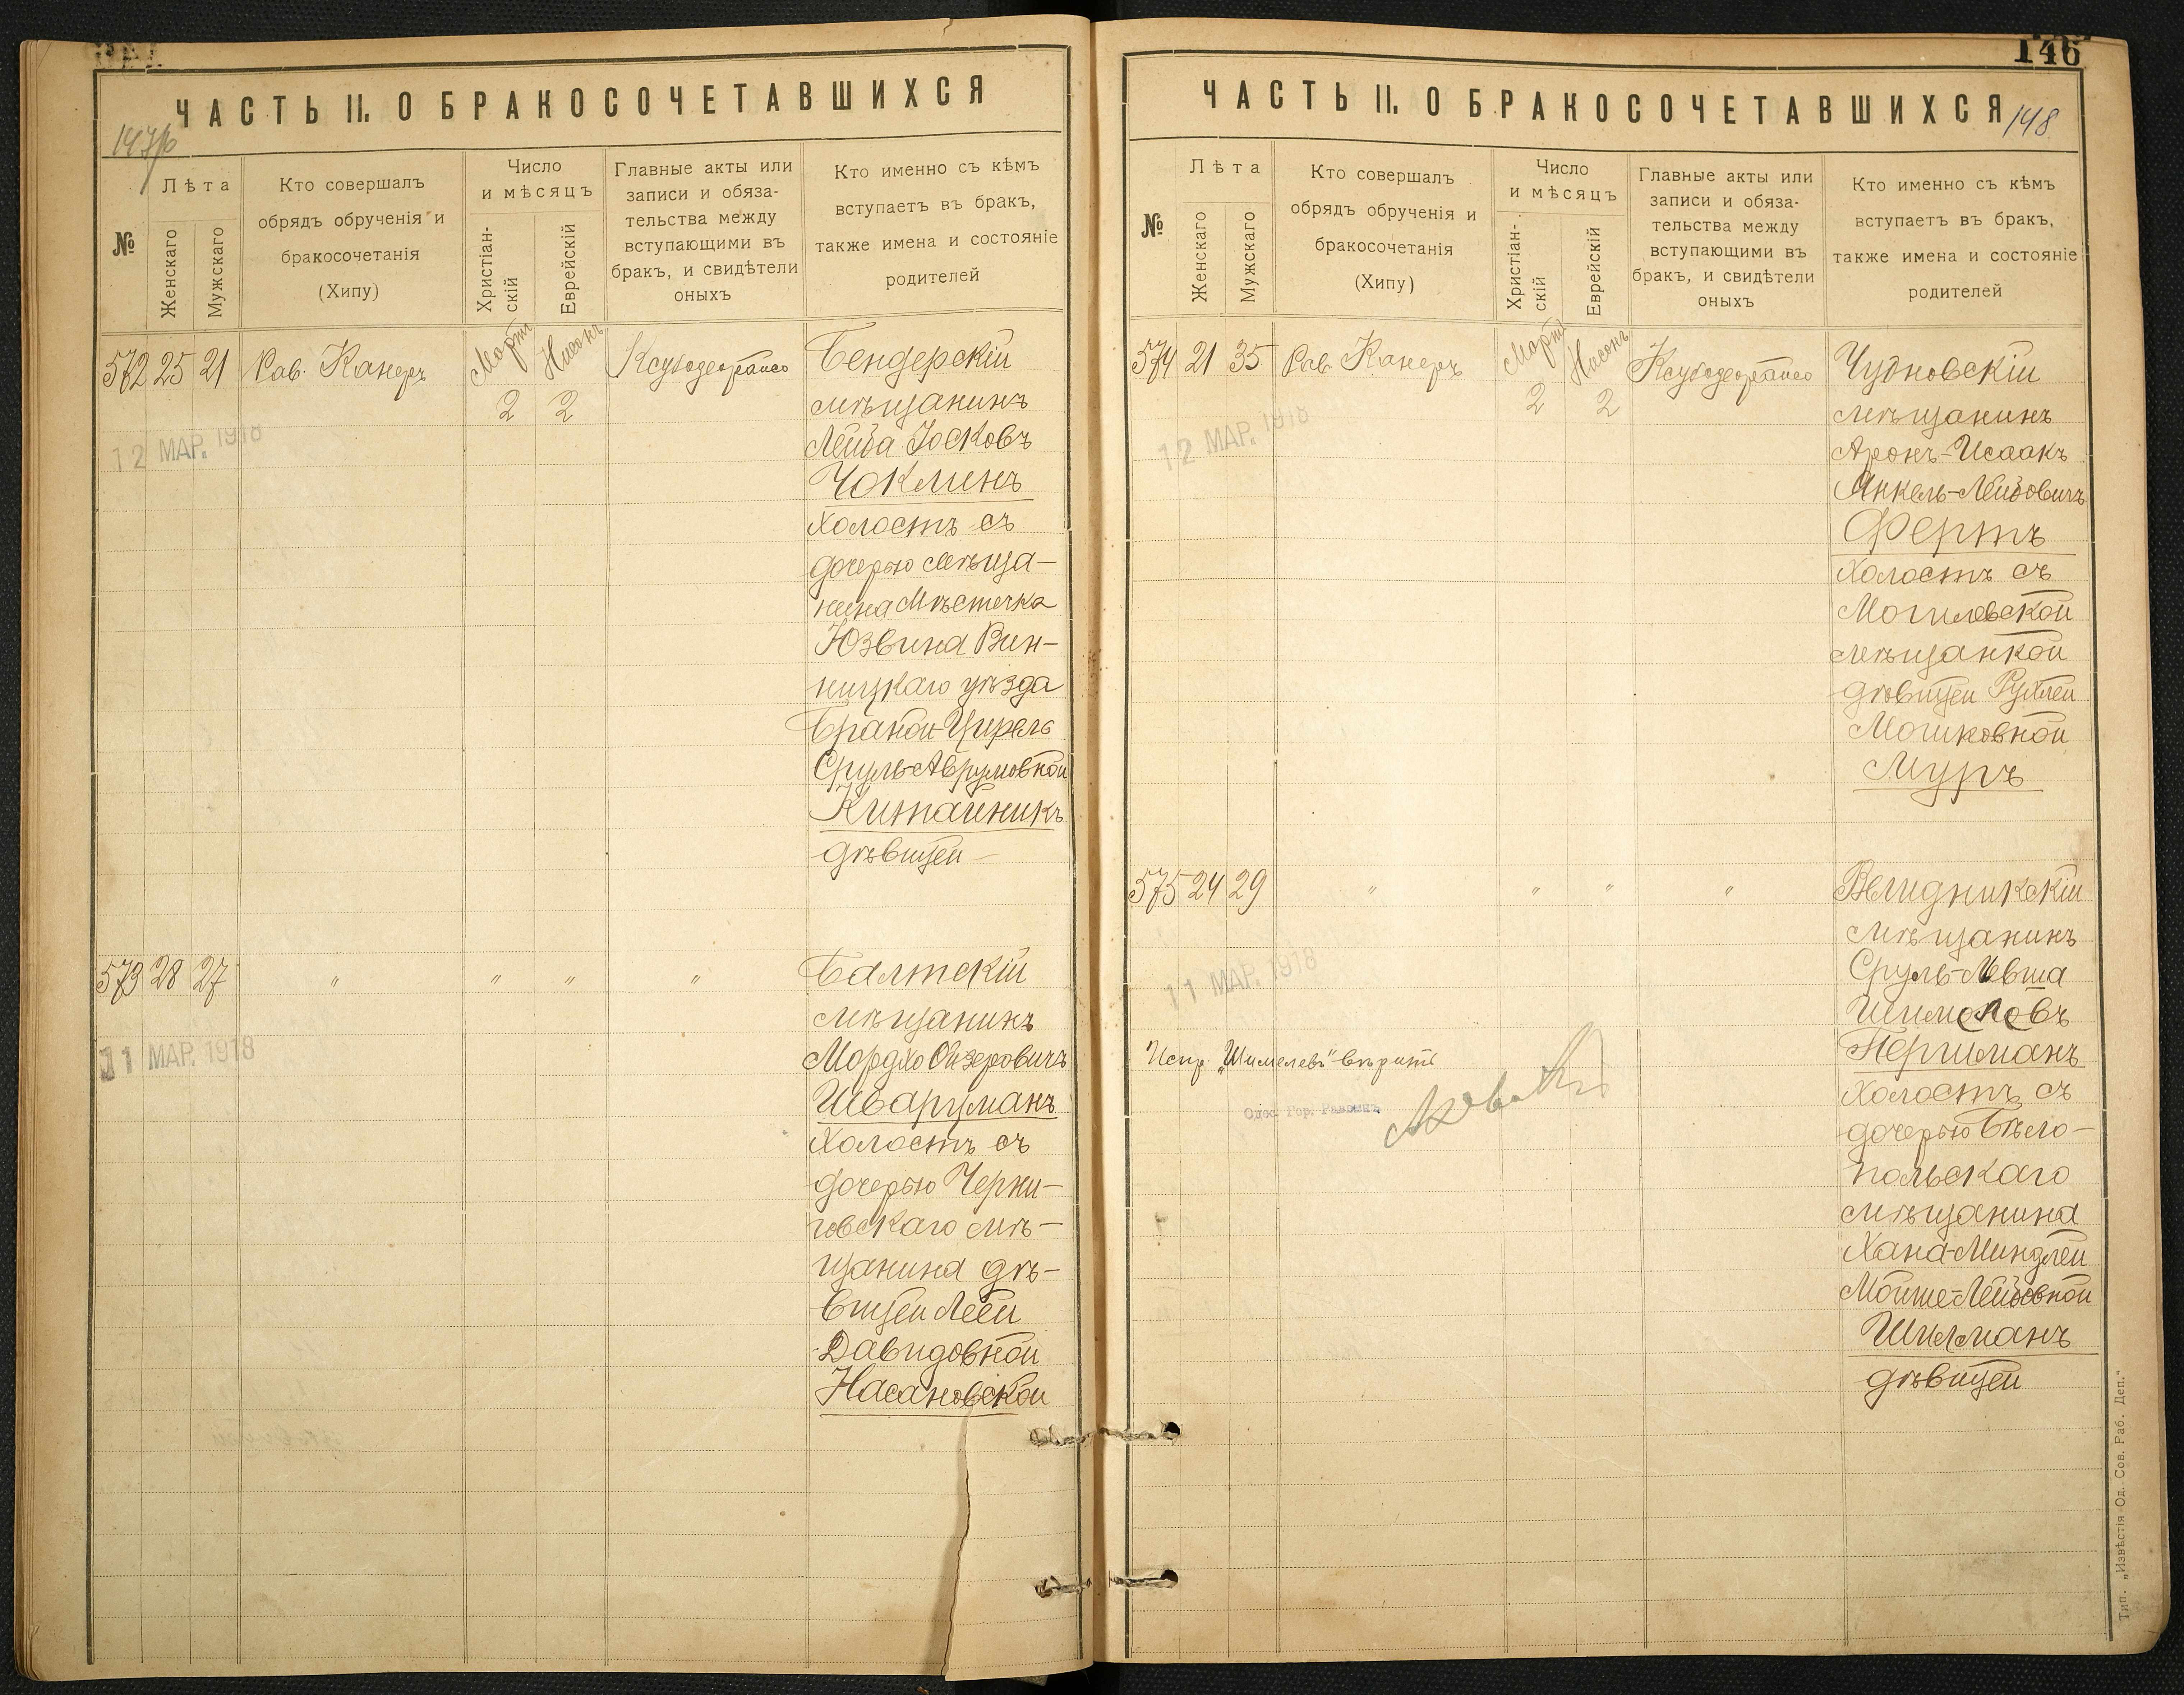 ЧАСТЬ II. О БРАКОСОЧЕТАВШИХСЯ
№
Лѣта
Женскаго
Мужскаго
Кто совершалъ
обрядъ обрученія и
бракосочетанія
(Хипу)
Число
и мѣсяцъ
Христіан-
скій
Еврейскій
Главные акты или
записи и обяза-
тельства между
вступающими въ
бракъ, и свидѣтели
оныхъ
Кто именно съ кѣмъ
вступаетъ въ бракъ,
также имена и состояніе
родителей
572 25 21 Рав. Канеръ Мартъ 2 Нисонъ 2
12 МАР. 1918
Бендерскій
мѣщанинъ
Лейба Іосковъ
Чоклинъ
холостъ съ
дочерью мѣща-
нина мѣстечка
Юзвина Вин-
ницкаго уѣзда
Браной-Цирель
Сруль-Аврумовной
Китайникъ
дѣвицей
573 28 27 " " " "
11 МАР. 1918
Балтскій
мѣщанинъ
Мордко Ойзеровичъ
Шварцманъ
холостъ съ
дочерью Черни-
говскаго мѣ-
щанина дѣ-
вицей Леей
Давидовной
Насановской
146
148
ЧАСТЬ II. О БРАКОСОЧЕТАВШИХСЯ
№
Лѣта
Женскаго
Мужскаго
Кто совершалъ
обрядъ обрученія и
бракосочетанія
(Хипу)
Число
и мѣсяцъ
Христіан-
скій
Еврейскій
Главные акты или
записи и обяза-
тельства между
вступающими въ
бракъ, и свидѣтели
оныхъ
Кто именно съ кѣмъ
вступаетъ въ бракъ,
также имена и состояніе
родителей
574 21 35 Рав. Канеръ Мартъ 2 Нисонъ 2
12 МАР. 1918
Чудновскій
мѣщанинъ
Аронъ-Исаакъ
Янкель-Лейбовичъ
Фертъ
холостъ съ
Могилевской
мѣщанкой
дѣвицей Рухлей
Мошковной
Муръ
575 24 29 " " " "
11 МАР. 1918
Велидникскій
мѣщанинъ
Сруль-Мвша
Шимелевъ
Першманъ
холостъ съ
дочерью Бѣло-
польскаго
мѣщанина
Хана-Миндлей
Мойше-Лейбовной
Шилманъ
дѣвицей
Испр. „Шимелевъ" вѣрить
Одес. Гор. Раввинъ
Тип. „Извѣстія Од. Сов. Раб. Деп."